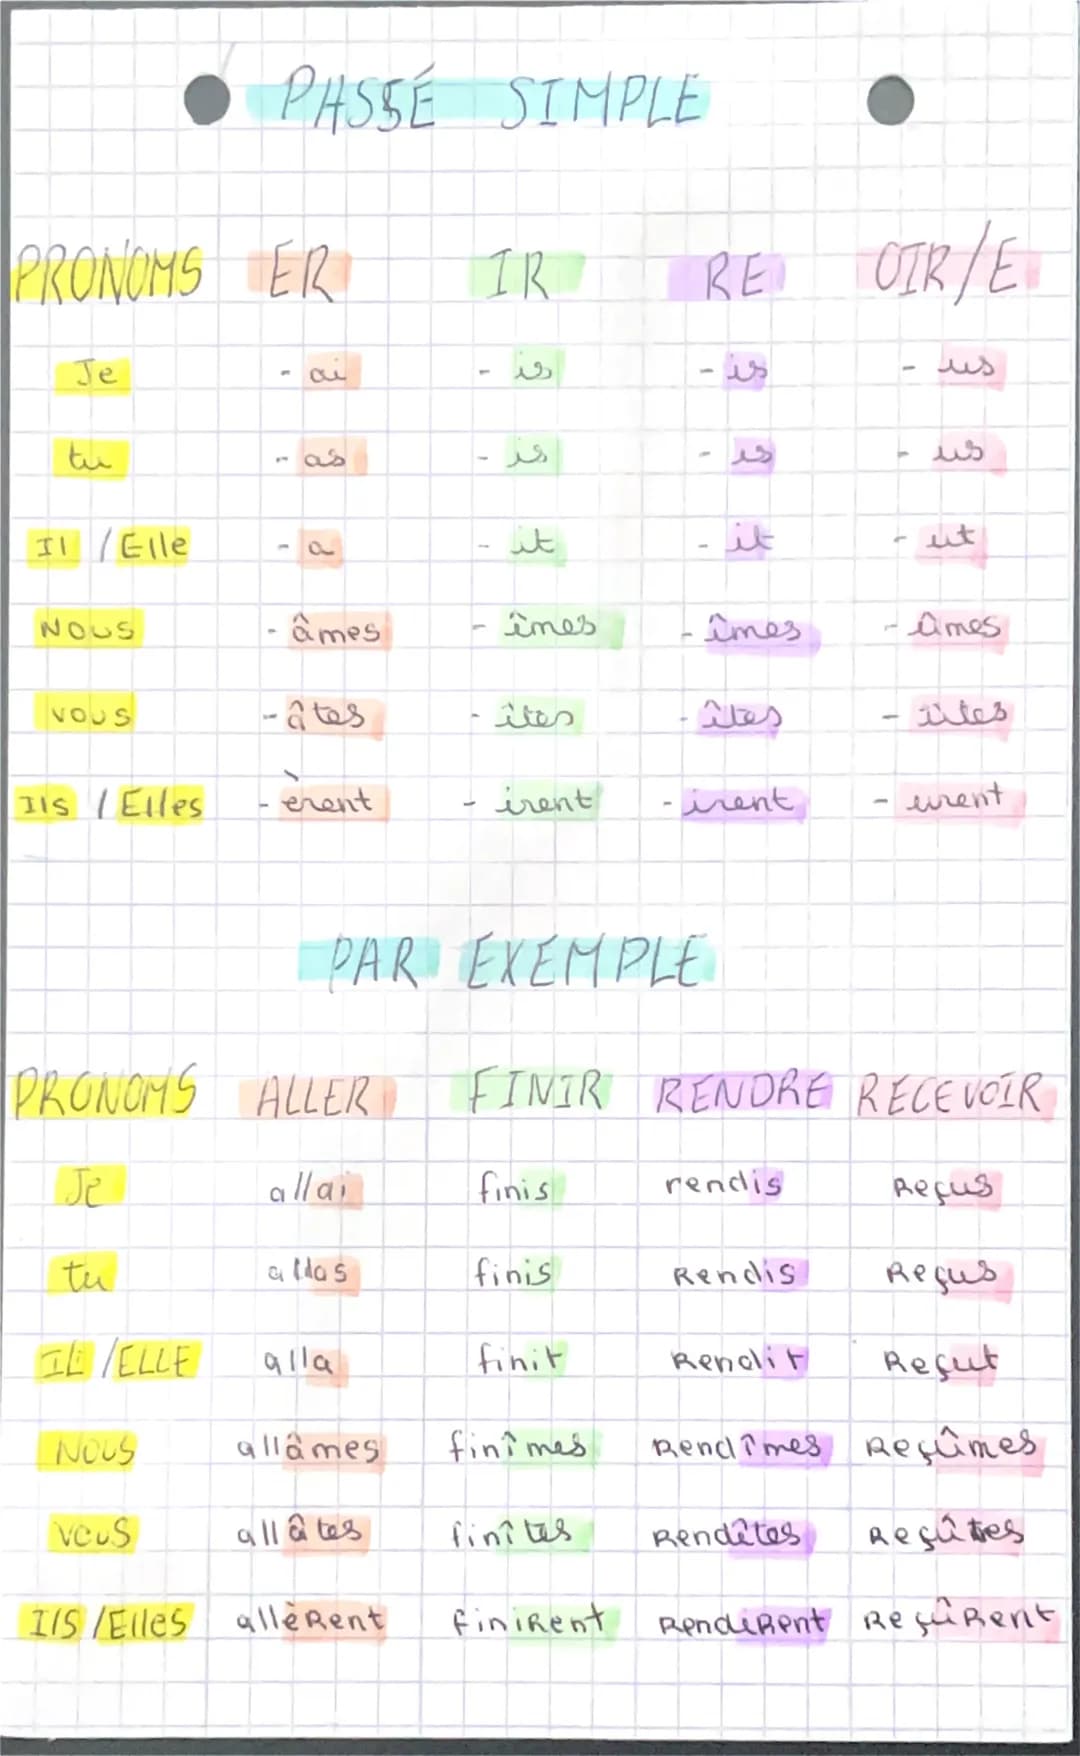 PASSÉ SIMPLE
PRONOMS ER IR RE OIR/E
Je - ai - is - is - us
tu - as - is - is - us
Il / Elle - a - it - it - ut
NOUS - âmes - îmes - îmes - ûmes
vous - âtes - îtes - îtes - ûtes
Ils / Elles - èrent - irent - irent - urent
PAR EXEMPLE
PRONOMS ALLER FINIR RENDRE RECEVOIR
Je allai finis rendis Reçus
tu allas finis Rendis Reçus
IL /ELLE alla finit Rendit Reçut
NOUS allâmes finîmes Rendîmes Reçûmes
vous allâtes finîtes Rendîtes Reçûtes
Ils /Elles allèRent finiRent RendiRent ReçûRent